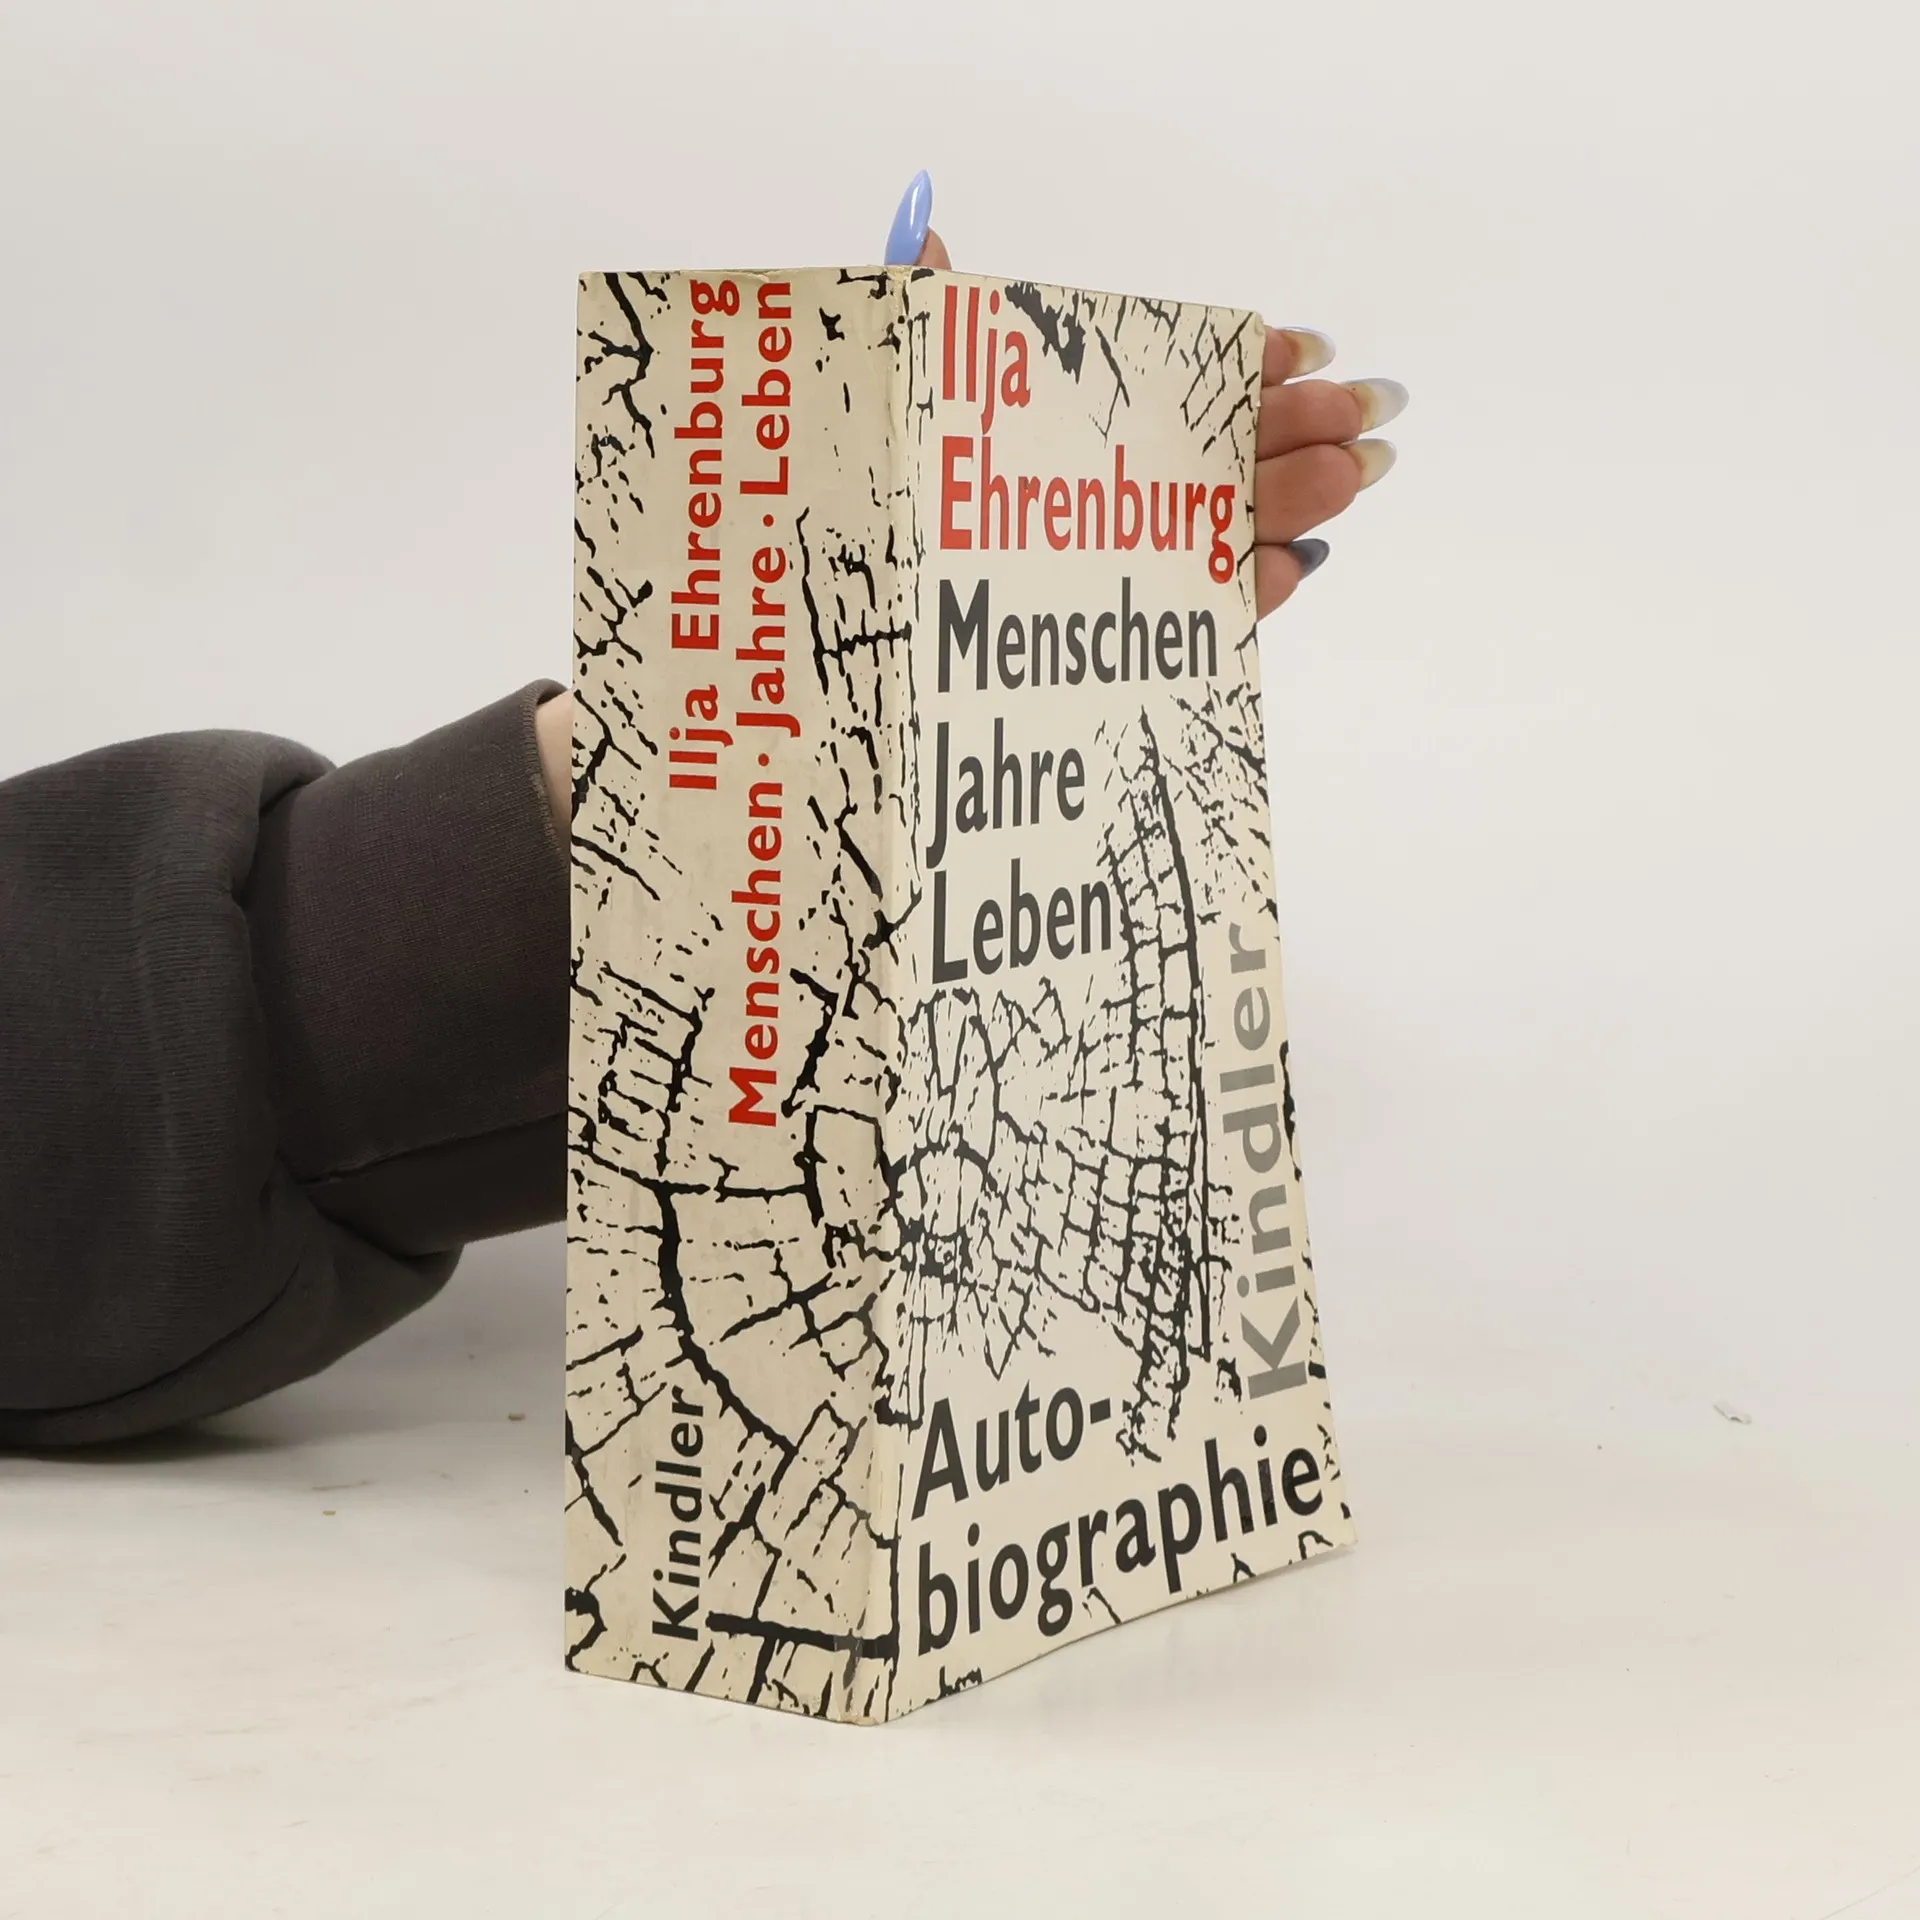 Ilja Ehrenburg
Menschen · Jahre · Leben
Kindler
Ilja
Ehrenburg
Menschen
Jahre
Leben
Kindler
Auto-
biographie